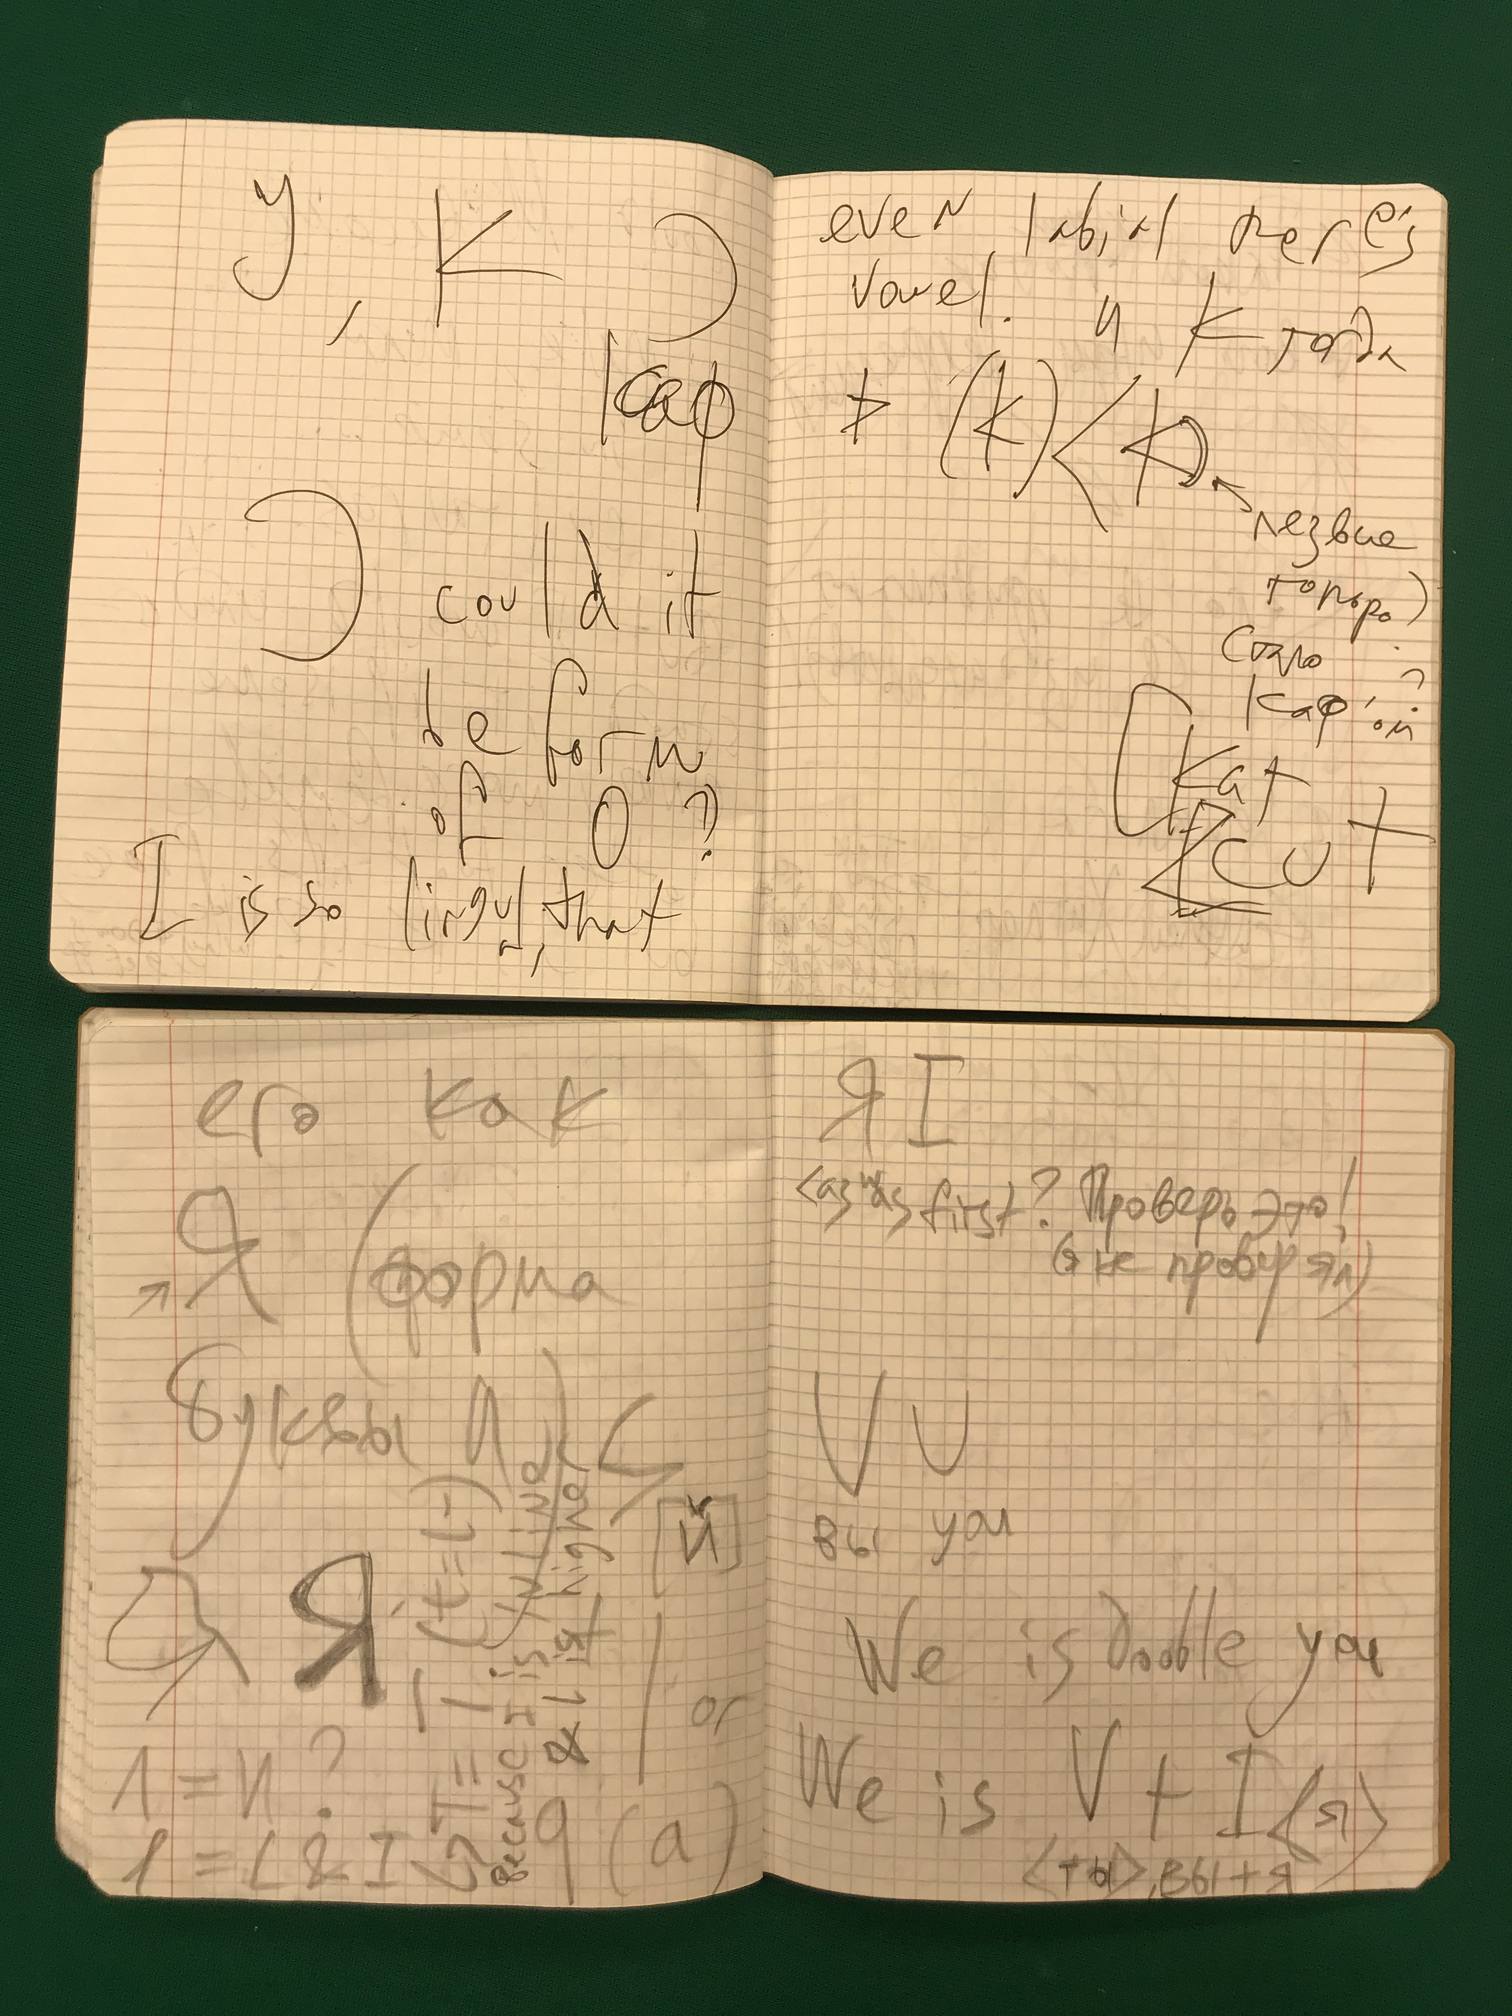 У, К
каф
could it
be form
of O ?
I is so lingual, that
even labial there's
vowel. и К тогда
(k) < 
лезвие
топора)
стало
каф'ой ?
kat
cut
его как
Я (форма
буквы А) <
[й]
Я
1 = и ?
1 = L & I
T = I (t = i-)
because I is IN LINE
& L is higher
| or
q (a)
Я I
<аз was first? Проверь это!
(я не проверял)
V U
вы you
We is double you
We is V + I <я>
<ты>, вы + я